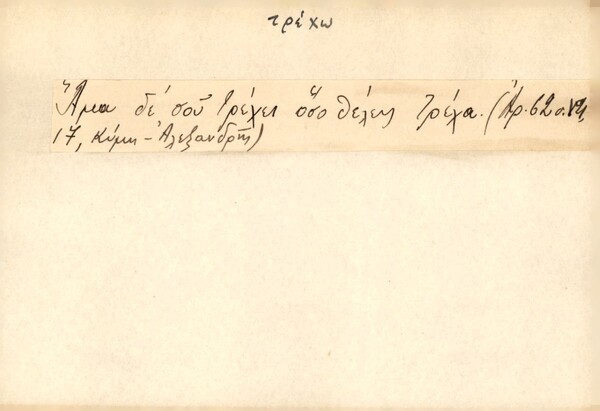 τρέχω
Ἅμα δέ σοῦ τρέχει ὅσο θέλεις τρέχα. (Ἀρ. 62 σ.
17, Κύμη - Ἀλεξανδρῆς)